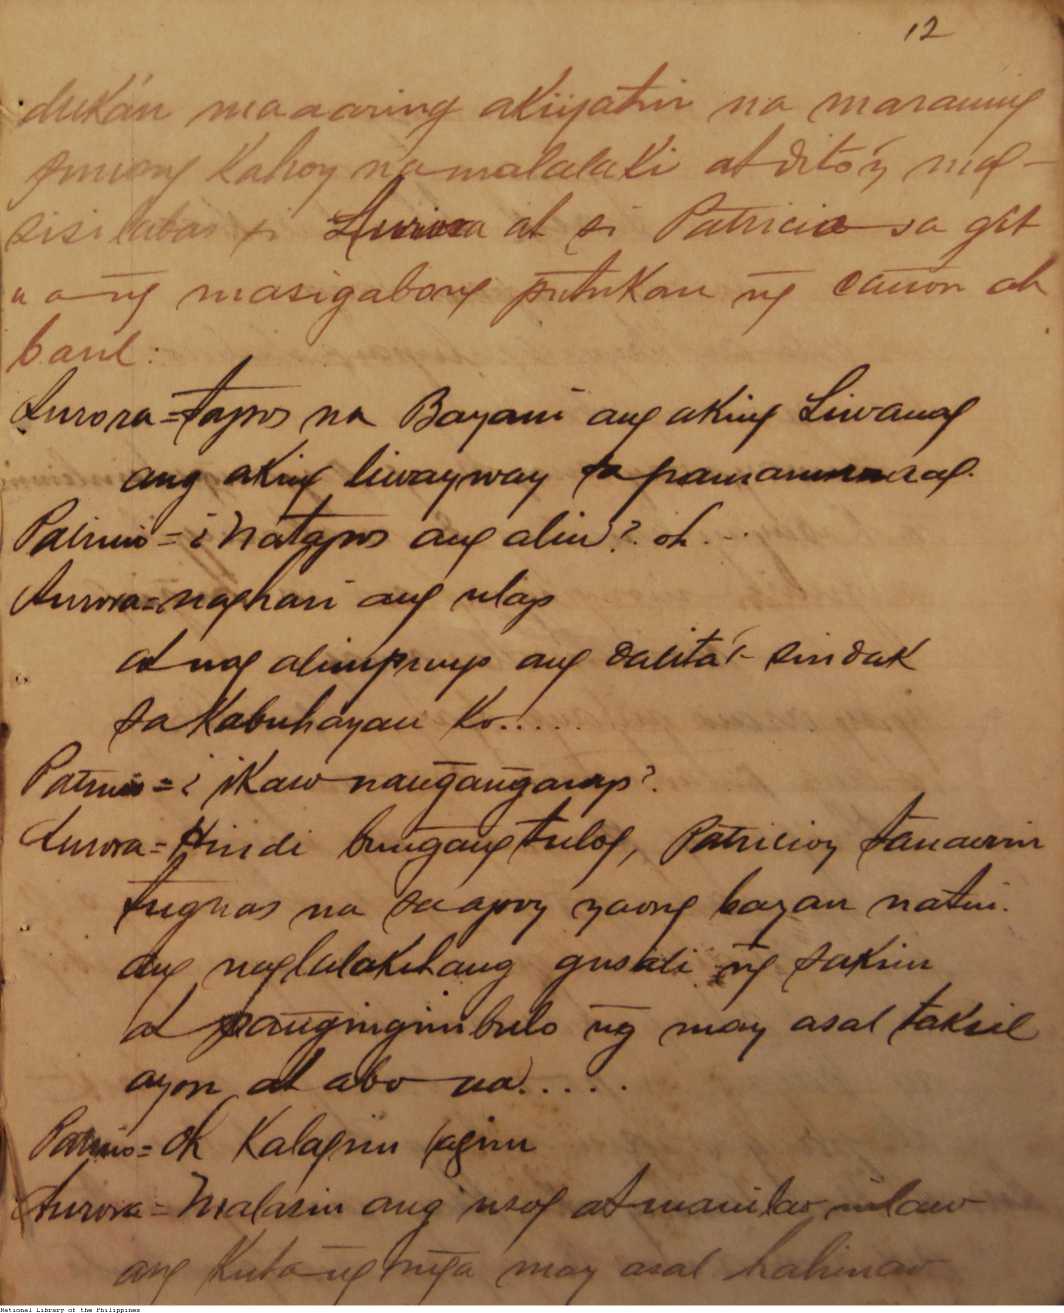 12
dukán maaaring akiyatin na maraming
punong Kahoy na malalaki at ditó'y mag-
sisilabas si Aurora at si Patricio sa git
na ng masigabong putukan ng cañon at
baril:
Aurora = tapos na Bayani ang aking Liwanag
ang aking liwayway sa pamamanaag.
Patricio = ¿Natapos ang alin? oh...
Aurora = naghari ang ulap
at nag alimpuyo ang dalita't sindak
sa Kabuhayan Ko.....
Patricio = ¿ikaw nangangarap?
Aurora = Hindi bungang tulog, Patricioy tanawin
tugnas na sa apoy yaong bayan natin.
ang naglalakihang gusali ng sakim
at pangingimbulo ng may asal taksil
ayon at abo na.....
Patricio = Oh Kalagim lagim
Aurora = Malasin ang usok at manilaw nilaw
ang Kuta ng mga may asal halimaw
National Library of the Philippines